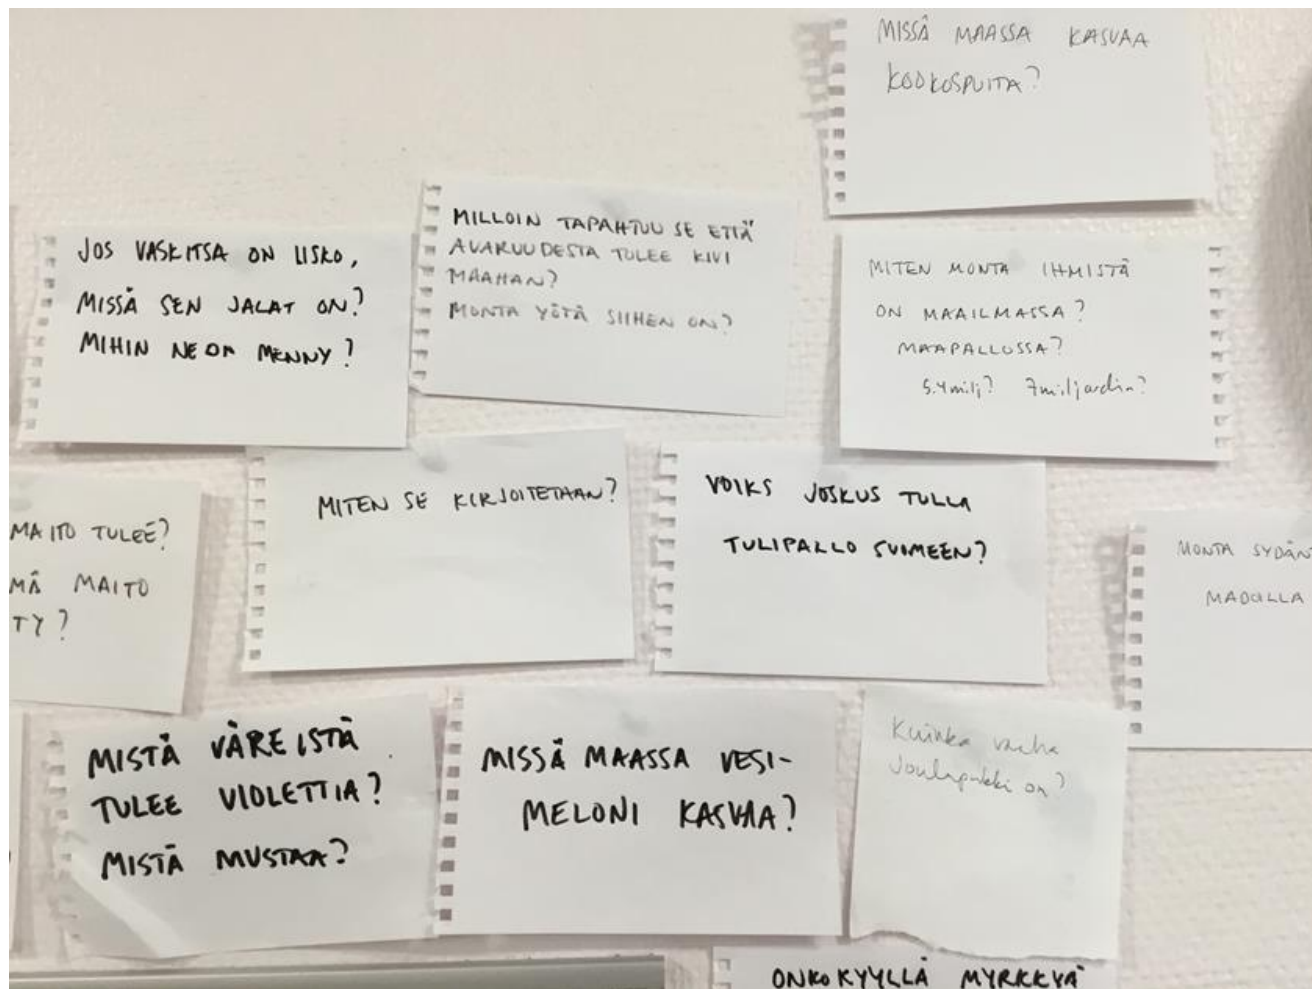 MISSÄ MAASSA KASVAA
KOOKOSPUITA?
JOS VASKITSA ON LISKO,
MISSÄ SEN JALAT ON?
MIHIN NE ON MENNY?
MILLOIN TAPAHTUU SE ETTÄ
AVARUUDESTA TULEE KIVI
MAAHAN?
MONTA YÖTÄ SIIHEN ON?
MITEN MONTA IHMISTÄ
ON MAAILMASSA?
MAAPALLOSSA?
5.4milj? 7miljardin?
MAITO TULEE?
MÄ MAITO
TY?
MITEN SE KIRJOITETAAN?
VOIKS JOSKUS TULLA
TULIPALLO SUOMEEN?
MONTA SYDÄNT
MADOLLA
MISTÄ VÄREISTÄ
TULEE VIOLETTIA?
MISTÄ MUSTAA?
MISSÄ MAASSA VESI-
MELONI KASVAA?
Kuinka vanha
Joulupukki on?
ONKO KYYLLÄ MYRKKYÄ